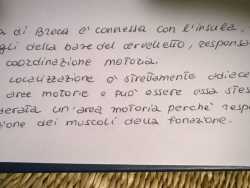 a di Broca è connessa con l'insula,
gli della base del cervelletto, responsa
coordinazione motoria.
localizzazione è strettamente adiace
aree motorie e può essere essa stes
derata un'area motoria perchè resp
zione dei muscoli della fonazione.